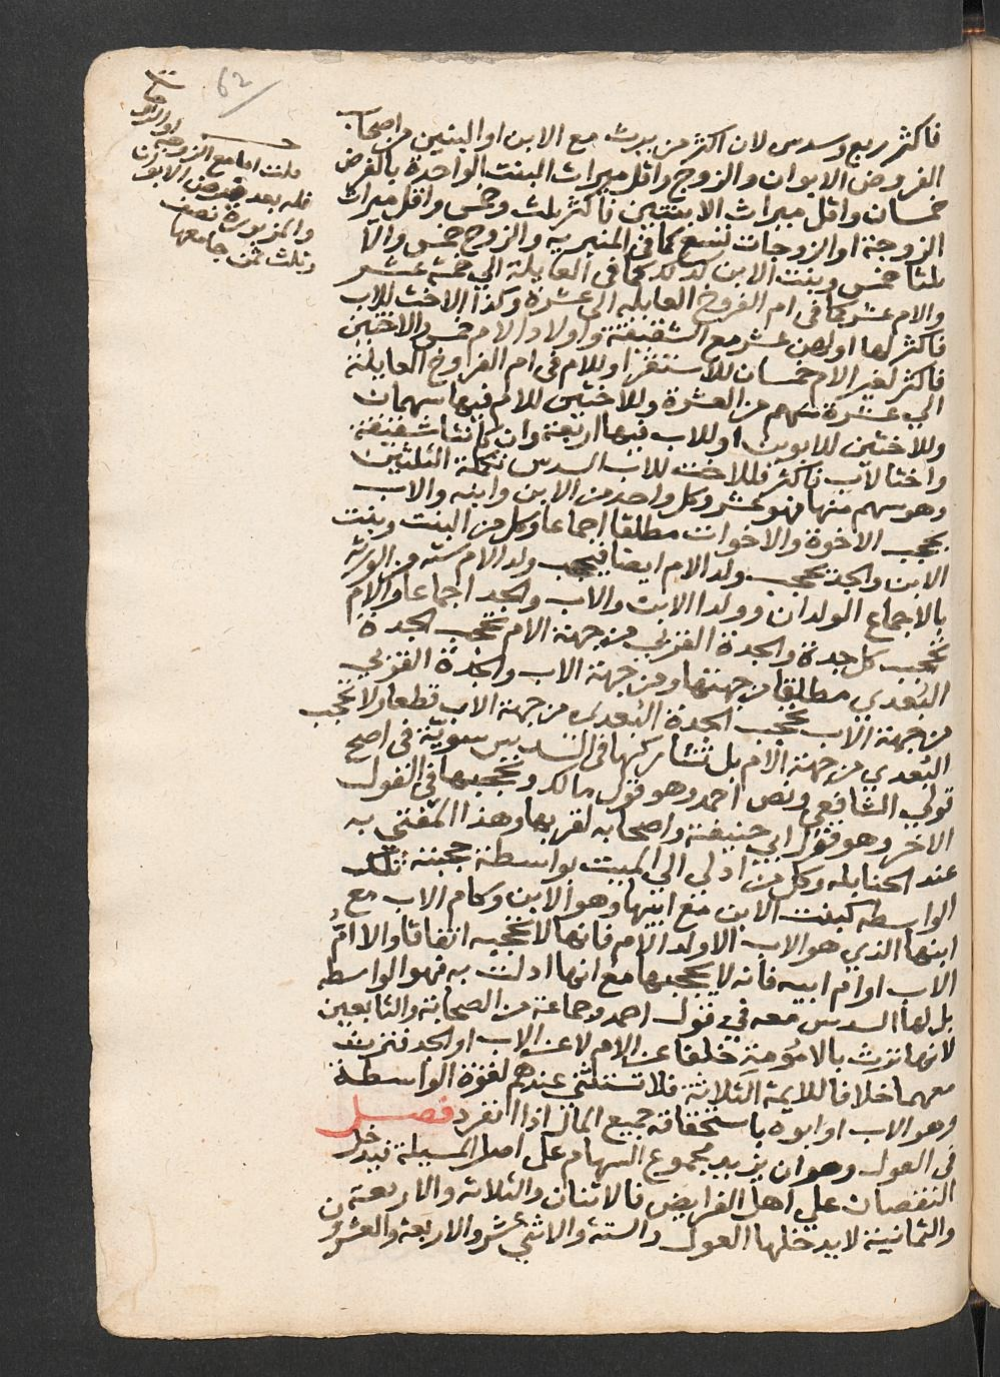 62
فاكثر ربع وسدس لان اكثر من يرث مع الابن او البنين من اصحاب
الفروض الابوان والزوج واقل ميراث البنت الواحدة بالفرض
خمسان واقل ميراث الابنتين فاكثر ثلث وخمس واقل ميراث
الزوجة او الزوجات تسع كما في المنبريه والزوج خمس والا
ثلثا خمس وبنت الابن كذلك كما في العايلة الي خمسة عشر
والام عشر كما في ام الفروخ العايله الى عشرة وكذا الاخت للاب
فاكثر لها او لهن عشر مع الشقيقة واولاد الام خمس والاختين
فاكثر لغير الام خمسان للاستقرا وللام في ام الفروخ العايلة
الي عشرة سهم من العشرة وللاختين للام فيها سهمان
وللاختين للابوين او للاب فيها اربعة وان كانتا شقيقة
واختا لاب فاكثر فللاخت للاب السدس تكملة الثلثين
وهو سهم منها فهو عشر وكل واحد من الابن وابنه والاب
يحجب الاخوة والاخوات مطلقا اجماعا وكل من البنت وبنت
الابن والجد يحجب ولد الام ايضا فيحجب ولد الام ستة من الورثة
بالاجماع الولدان وولدا الابن والاب والجد اجماعا والام
تحجب كل جدة والجدة القربي من جهة الام تحجب الجدة
البعدي مطلقا من جهتها ومن جهة الاب والجدة القربي
من جهة الاب تحجب الجدة البعدي من جهة الاب قطعا ولا تحجب
البعدي من جهة الام بل تشاركها في السدس سوية في اصح
قولي الشافعي ونص احمد وهو قول مالك وتحجبها في القول
الاخر وهو قول ابي حنيفة واصحابه لقربها وهذا المفتي به
عند الحنابله وكل من ادلي الي الميت بواسطة حجبته تلك
الواسطه كبنت الابن مع ابيها وهو الابن وكام الاب مع
ابنها الذي هو الاب الا ولد الام فانها لا تحجبه اتفاقا والا ام
الاب او ام ابيه فانه لا يحجبها مع انها ادلت به فهو الواسطه
بل لها السدس معه في قول احمد وجماعة من الصحابة والتابعين
لانها ترث بالامومة خلفا عن الام لا عن الاب او الجد فترث
معهما خلافا للايمة الثلاثة فلا تستثني عندهم لقوة الواسطة
وهو الاب او ابوه باستحقاقه جميع المال اذا انفرد فصل
في العول وهو ان يزيد مجموع السهام على اصل المسيلة فيدخل
النقصان علي اهل الفرايض فالاثنان والثلاثة والاربعة
والثمانية لا يدخلها العول والستة والاثني عشر والاربعة والعشرون
قلت اما مع الزوجة او الزوجات
فله بعد فرض الابوين
والمزبورة نصف
وثلث ثمن جامعها